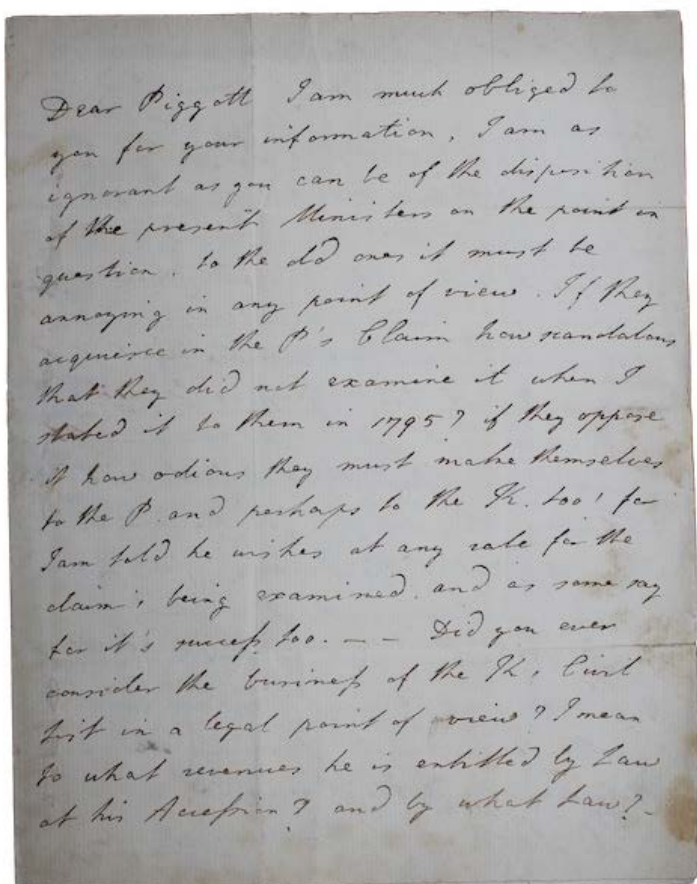 Dear Piggott I am much obliged to
you for your information, I am as
ignorant as you can be of the disposition
of the present Ministers on the point in
question. to the old ones it must be
annoying in any point of view. If they
acquiesce in the P's Claim how scandalous
that they did not examine it when I
stated it to them in 1795? if they oppose
it how odious they must make themselves
to the P. and perhaps to the K. too! for
I am told he wishes at any rate for the
claim's being examined. and as some say
for it's success too. — — Did you ever
consider the business of the K's Civil
list in a legal point of view? I mean
to what revenues he is entitled by Law
at his Accession? and by what Law?-